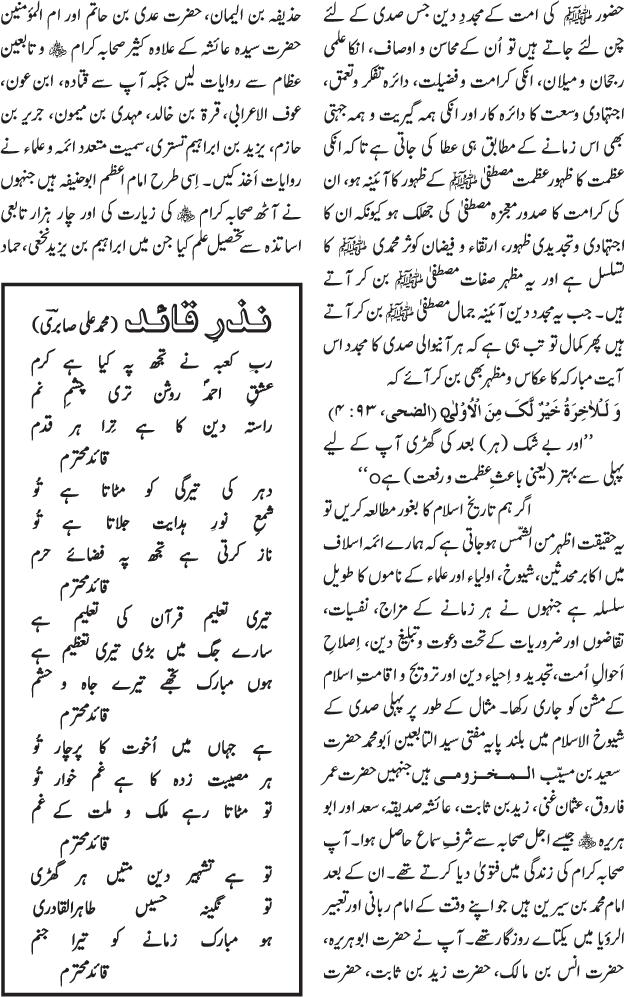 حضور ﷺ کی امت کے مجددِ دین جس صدی کے لئے
چن لئے جاتے ہیں تو اُن کے محاسن و اوصاف، انکا علمی
رجحان و میلان، انکی کرامت و فضیلت، دائرہ تفکر و تعمق،
اجتہادی وسعت کا دائرہ کار اور انکی ہمہ گیریت و ہمہ جہتی
بھی اس زمانے کے مطابق ہی عطا کی جاتی ہے تا کہ انکی
عظمت کا ظہور عظمت مصطفیٰ ﷺ کے ظہور کا آئینہ ہو، ان
کی کرامت کا صدور معجزہ مصطفیٰ کی جھلک ہو کیونکہ ان کا
اجتہادی و تجدیدی ظہور، ارتقاء و فیضان کوثر محمدی ﷺ کا
تسلسل ہے اور یہ مظہر صفات مصطفیٰ ﷺ بن کر آتے
ہیں۔ جب یہ مجدد دین آئینہ جمال مصطفیٰ ﷺ بن کر آتے
ہیں پھر کمال تو تب ہی ہے کہ ہر آنیوالی صدی کا مجدد اس
آیت مبارکہ کا عکاس و مظہر بھی بن کر آئے کہ
وَ لَـلْاٰخِرَةُ خَيْرٌ لَّکَ مِنَ الْاُوْلٰیo (الضحی، ۹۳: ۴)
’’اور بے شک (ہر) بعد کی گھڑی آپ کے لیے
پہلی سے بہتر (یعنی باعثِ عظمت و رفعت) ہےo‘‘
اگر ہم تاریخ اسلام کا بغور مطالعہ کریں تو
یہ حقیقت اظہر من الشّمس ہو جاتی ہے کہ ہمارے ائمہ اسلاف
میں اکابر محدثین، شیوخ، اولیاء اور علماء کے ناموں کا طویل
سلسلہ ہے جنہوں نے ہر زمانے کے مزاج، نفسیات،
تقاضوں اور ضروریات کے تحت دعوت و تبلیغ دین، اِصلاحِ
اَحوالِ اُمت، تجدید و اِحیاء دین اور ترویج و اقامتِ اسلام
کے مشن کو جاری رکھا۔ مثال کے طور پر پہلی صدی کے
شیوخ الاسلام میں بلند پایہ مفتی سید التابعین اَبو محمد حضرت
سعید بن مسیّب المخزومی ہیں جنہیں حضرت عمر
فاروق، عثمان غنی، زید بن ثابت، عائشہ صدیقہ، سعد اور ابو
ہریرہ ؓ جیسے اجل صحابہ سے شرفِ سماع حاصل ہوا۔ آپ
صحابہ کرام کی زندگی میں فتویٰ دیا کرتے تھے۔ ان کے بعد
امام محمد بن سیرین ہیں جو اپنے وقت کے امام ربانی اور تعبیر
الرؤیا میں یکتائے روزگار تھے۔ آپ نے حضرت ابوہریرہ،
حضرت انس بن مالک، حضرت زید بن ثابت، حضرت
حذیفہ بن الیمان، حضرت عدی بن حاتم اور ام المؤمنین
حضرت سیدہ عائشہ کے علاوہ کثیر صحابہ کرام ؓ و تابعین
عظام سے روایات لیں جبکہ آپ سے قتادہ، ابن عون،
عوف الاعرابی، قرۃ بن خالد، مہدی بن میمون، جریر بن
حازم، یزید بن ابراہیم تستری، سمیت متعدد ائمہ و علماء نے
روایات اَخذ کیں۔ اِسی طرح امام اعظم ابو حنیفہ ہیں جنہوں
نے آٹھ صحابہ کرام ؓ کی زیارت کی اور چار ہزار تابعی
اساتذہ سے تحصیل علم کیا جن میں ابراہیم بن یزید نخعی، حماد
نذرِ قائد (محمد علی صابریؔ)
رب کعبہ نے تجھ پہ کیا ہے کرم
عشقِ احمدؐ روشن تری چشمِ نم
راستہ دین کا ہے تِرا ہر قدم
قائد محترم
دہر کی تیرگی کو مٹاتا ہے تُو
شمعِ نورِ ہدایت جلاتا ہے تُو
ناز کرتی ہے تجھ پہ فضائے حرم
قائد محترم
تیری تعلیم قرآن کی تعلیم ہے
سارے جگ میں بڑی تیری تعظیم ہے
ہوں مبارک تجھے تیرے جاہ و حشم
قائد محترم
ہے جہاں میں اُخوت کا پرچار تُو
ہر مصیبت زدہ کا ہے غم خوار تُو
تو مٹاتا رہے ملک و ملت کے غم
قائد محترم
تو ہے تشہیر دین متیں ہر گھڑی
تو نگینہ حسیں طاہر القادری
ہو مبارک زمانے کو تیرا جنم
قائد محترم